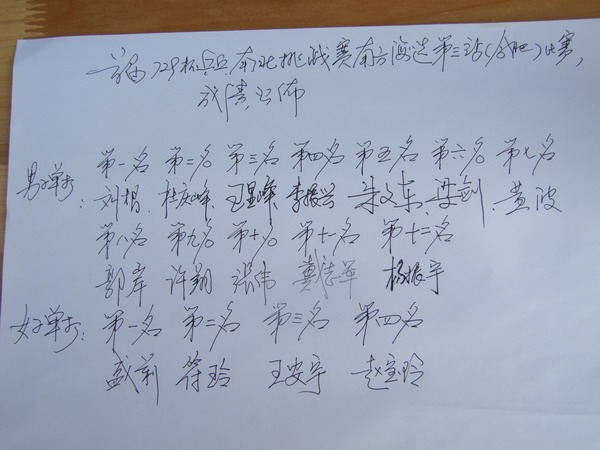 首届729杯乒乓南北挑战赛南方海选第三站(合肥)比赛,
成绩公布
第一名 第二名 第三名 第四名 第五名 第六名 第七名
男子单打: 刘楷、杜庆峰、王星峰、李振兴 朱文东、梁剑、黄波
第八名 第九名 第十名 第十一名 第十二名
郭岸 许翔 张伟 戴志军 杨振宇
女子单打: 第一名 第二名 第三名 第四名
盛莉 符玲 王安宇 赵宝玲